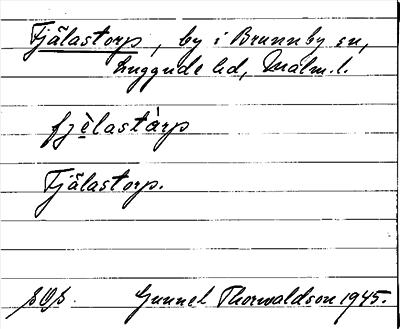 Fjälastorp, by i Brunnby sn,
Luggude hd, Malm. l.
fjèlastàrp
Fjälastorp.
SOS. Gunnel Thorwaldson 1945.